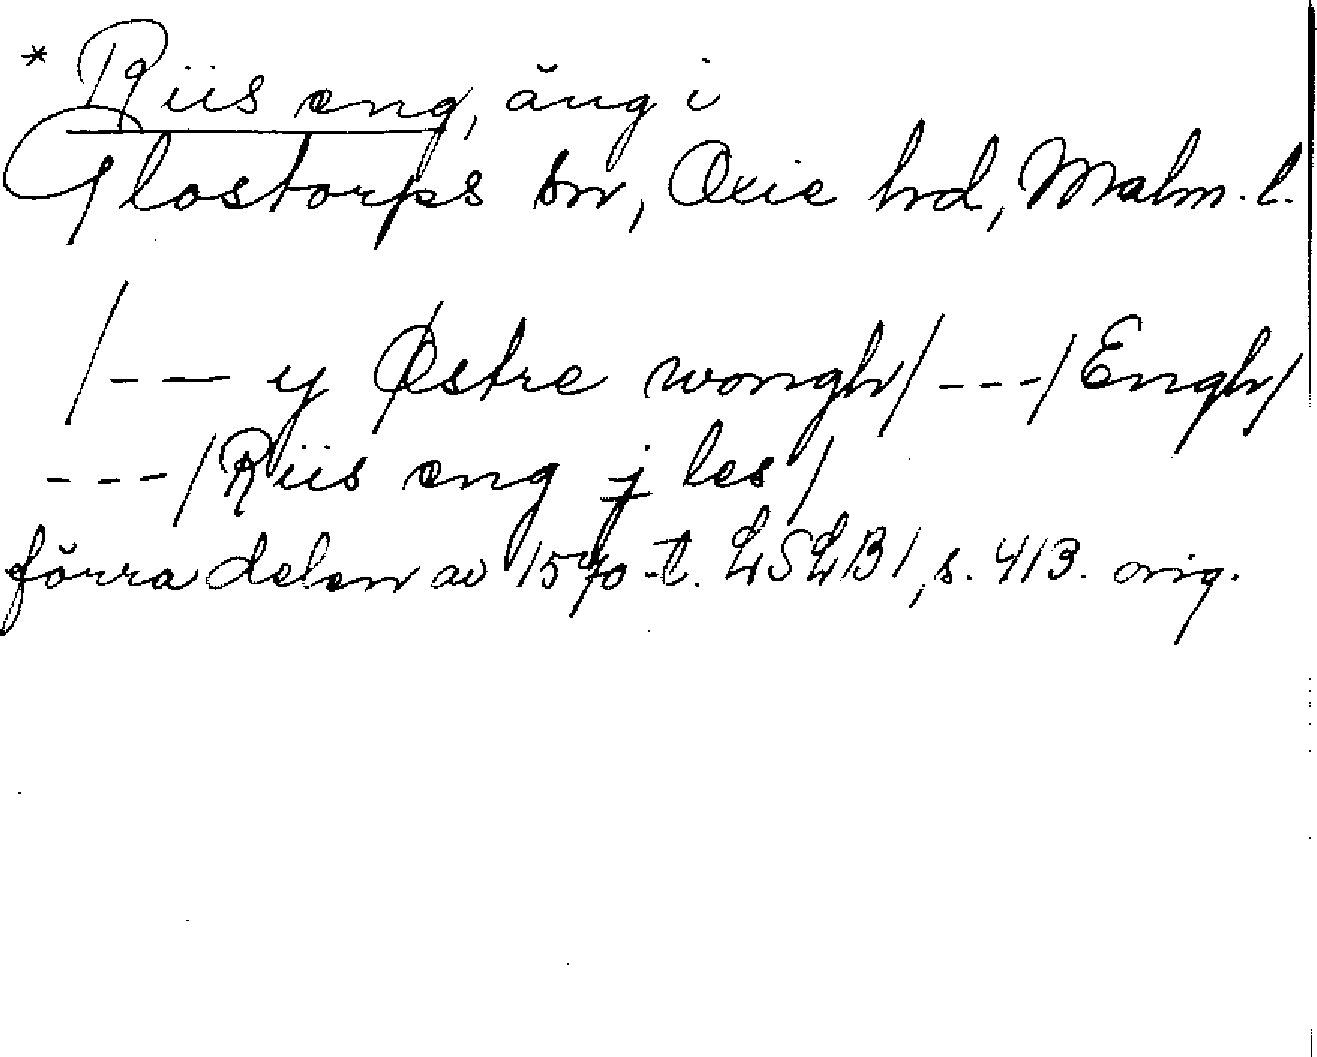 * Riis eng, äng i
Glostorps sn, Oxie hd, Malm. l.
/--- y Østre wongh/ ---/Engh/
---/Riis eng j les/
förra delen av 1570-t. LSLB1, s. 413. orig.